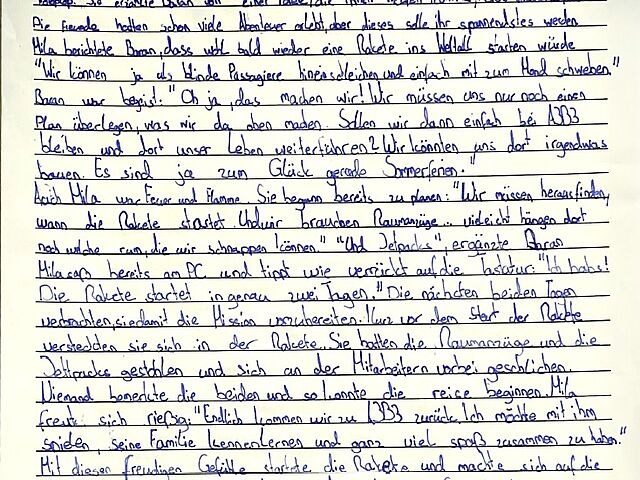 Die Freunde hatten schon viele Abenteuer erlebt, aber dieses solle ihr spannendstes werden
Mila berichtete Baran, dass wohl bald wieder eine Rakete ins Weltall starten würde
"Wir können ja als blinde Passagiere hineinschleichen und einfach mit zum Mond schweben."
Baran war begeist: "Oh ja, das machen wir! Wir müssen uns nur noch einen
Plan überlegen, was wir da oben machen. Sollen wir dann einfach bei
bleiben und dort unser Leben weiterführen? Wir könnten uns dort irgendwas
bauen. Es sind ja zum Glück gerade Sommerferien."
Auch Mila war Feuer und Flamme. Sie begann bereits zu planen: "Wir müssen herausfinden,
wann die Rakete startet. Und wir brauchen Raumanzüge... vieleicht hängen dort
noch welche rum, die wir schnappen können" "Und Jetpacks", ergänzte Baran
Mila saß bereits am PC und tippt wie verrückt auf die Tastatur: "Ich habs!
Die Rakete startet in genau zwei Tagen." Die nächsten beiden Tagen
verbrachten, sie damit die Mission vorzubereiten. Kurz vor dem Start der Rakete
versteckten sie sich in der Rakete. Sie hatten die Raumanzüge und die
Jettpacks gestohlen und sich an der Mitarbeitern vorbei geschlichen.
Niemand bemerkte die beiden und so konnte die reise beginnen. Mila
freute sich rießig: "Endlich kommen wir zu zurück. Ich möchte mit ihm
spielen, seine Familie kennenlernen und ganz viel spaß zusammen zu haben."
Mit diesen freudigen Gefühle startete die Rakete und machte sich auf die